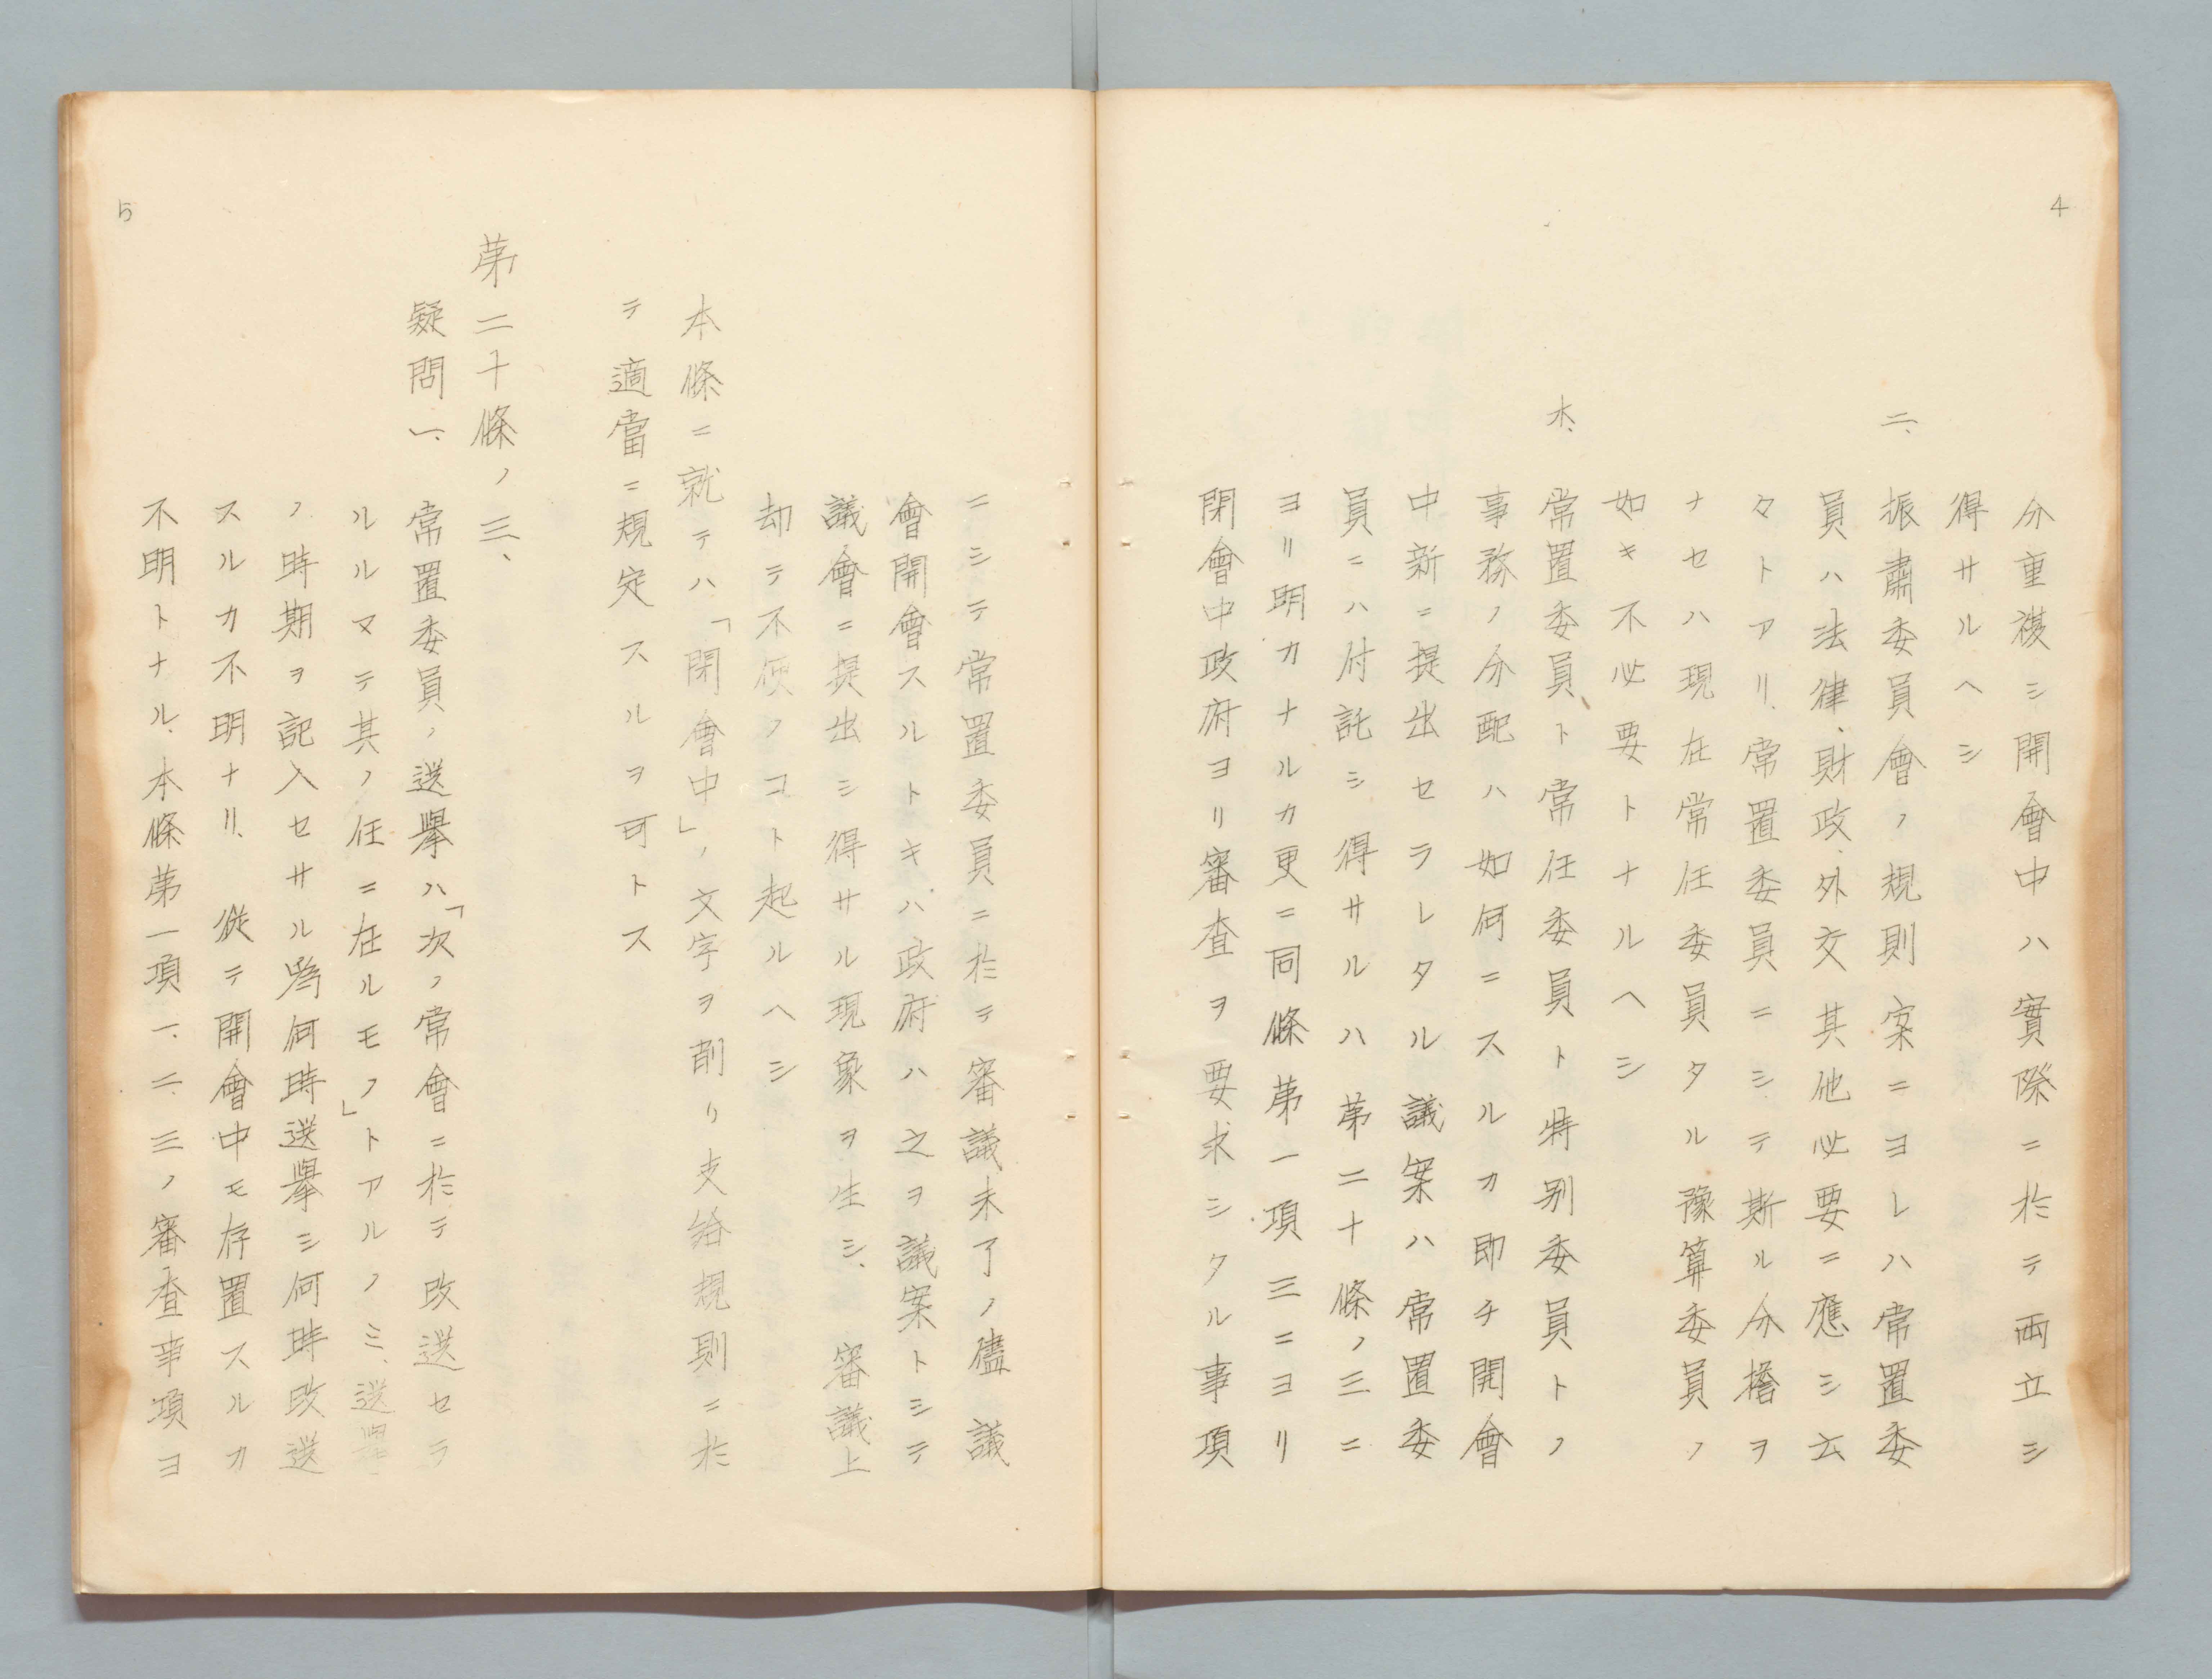 4
分重複シ開會中ハ實際ニ於テ両立シ
得サルヘシ
ニ、振肅委員會ノ規則案ニヨレハ常置委
員ハ法律、財政、外交其他必要ニ應シ云
々トアリ、常置委員ニシテ斯ル分擔ヲ
ナセハ現在常任委員タル豫算委員ノ
如キ不必要トナルヘシ
ホ、常置委員ト常任委員ト特別委員トノ
事務ノ分配ハ如何ニスルカ即チ開會
中新ニ提出セラレタル議案ハ常置委
員ニハ付託シ得サルハ第二十條ノ三ニ
ヨリ明カナルカ更ニ同條第一項三ニヨリ
閉會中政府ヨリ審査ヲ要求シタル事項
ニシテ常置委員ニ於テ審議未了ノ儘議
會開會スルトキハ政府ハ之ヲ議案トシテ
議會ニ提出シ得サル現象ヲ生シ、審議上
却テ不便ノコト起ルヘシ
本條ニ就テハ「閉會中」ノ文字ヲ削リ支給規則ニ於
テ適當ニ規定スルヲ可トス
第二十條ノ三、
疑問一、常置委員ノ選擧ハ「次ノ常會ニ於テ改選セラ
ルルマテ其ノ任ニ在ルモノ」トアルノミ、選擧
ノ時期ヲ記入セサル爲何時選擧シ何時改選
スルカ不明ナリ、從テ開會中モ存置スルカ
不明トナル、本條第一項一、二、三ノ審査事項ヨ
5